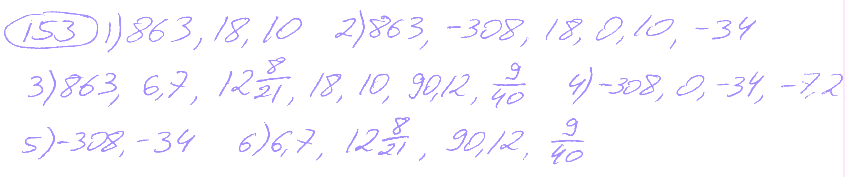 153 1) 863, 18, 10 2) 863, -308, 18, 0, 10, -34
3) 863, 6,7, 12 8/21, 18, 10, 90,12, 9/40 4) -308, 0, -34, -7,2
5) -308, -34 6) 6,7, 12 8/21, 90,12, 9/40